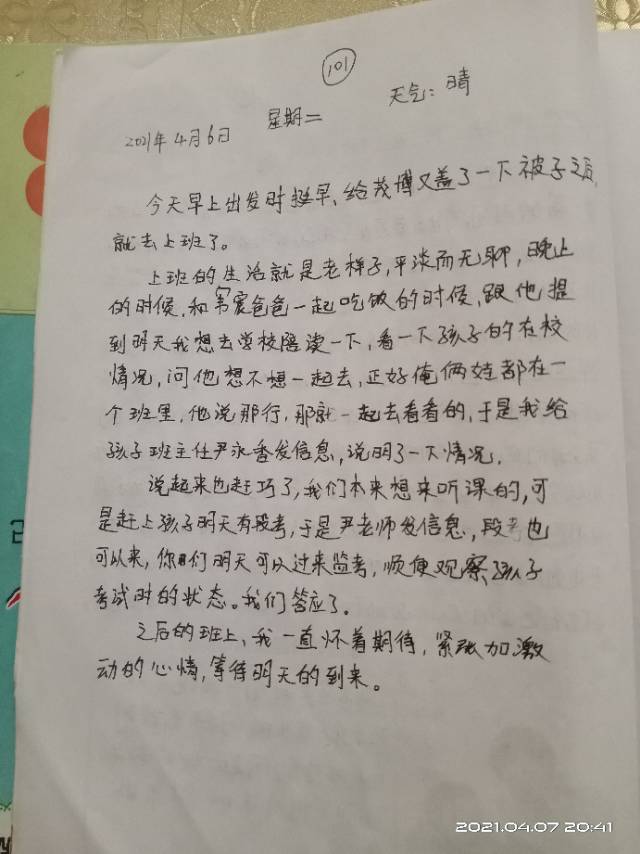 101
2021年4月6日 星期二 天气：晴
今天早上出发时挺早，给茂博又盖了一下被子之后，
就去上班了。
上班的生活就是老样子，平淡而无聊，晚上
的时候，和爸爸一起吃饭的时候，跟他提
到明天我想去学校陪读一下，看一下孩子的在校
情况，问他想不想一起去，正好俺俩娃都在一
个班里，他说那行，那就一起去看看的，于是我给
孩子班主任尹永香发信息，说明了一下情况，
说起来也赶巧了，我们本来想来听课的，可
是赶上孩子明天有段考，于是尹老师发信息，段考也
可以来，你们明天可以过来监考，顺便观察孩子
考试时的状态。我们答应了。
之后的班上，我一直怀着期待，紧张加激
动的心情，等待明天的到来。
2021.04.07 20:41